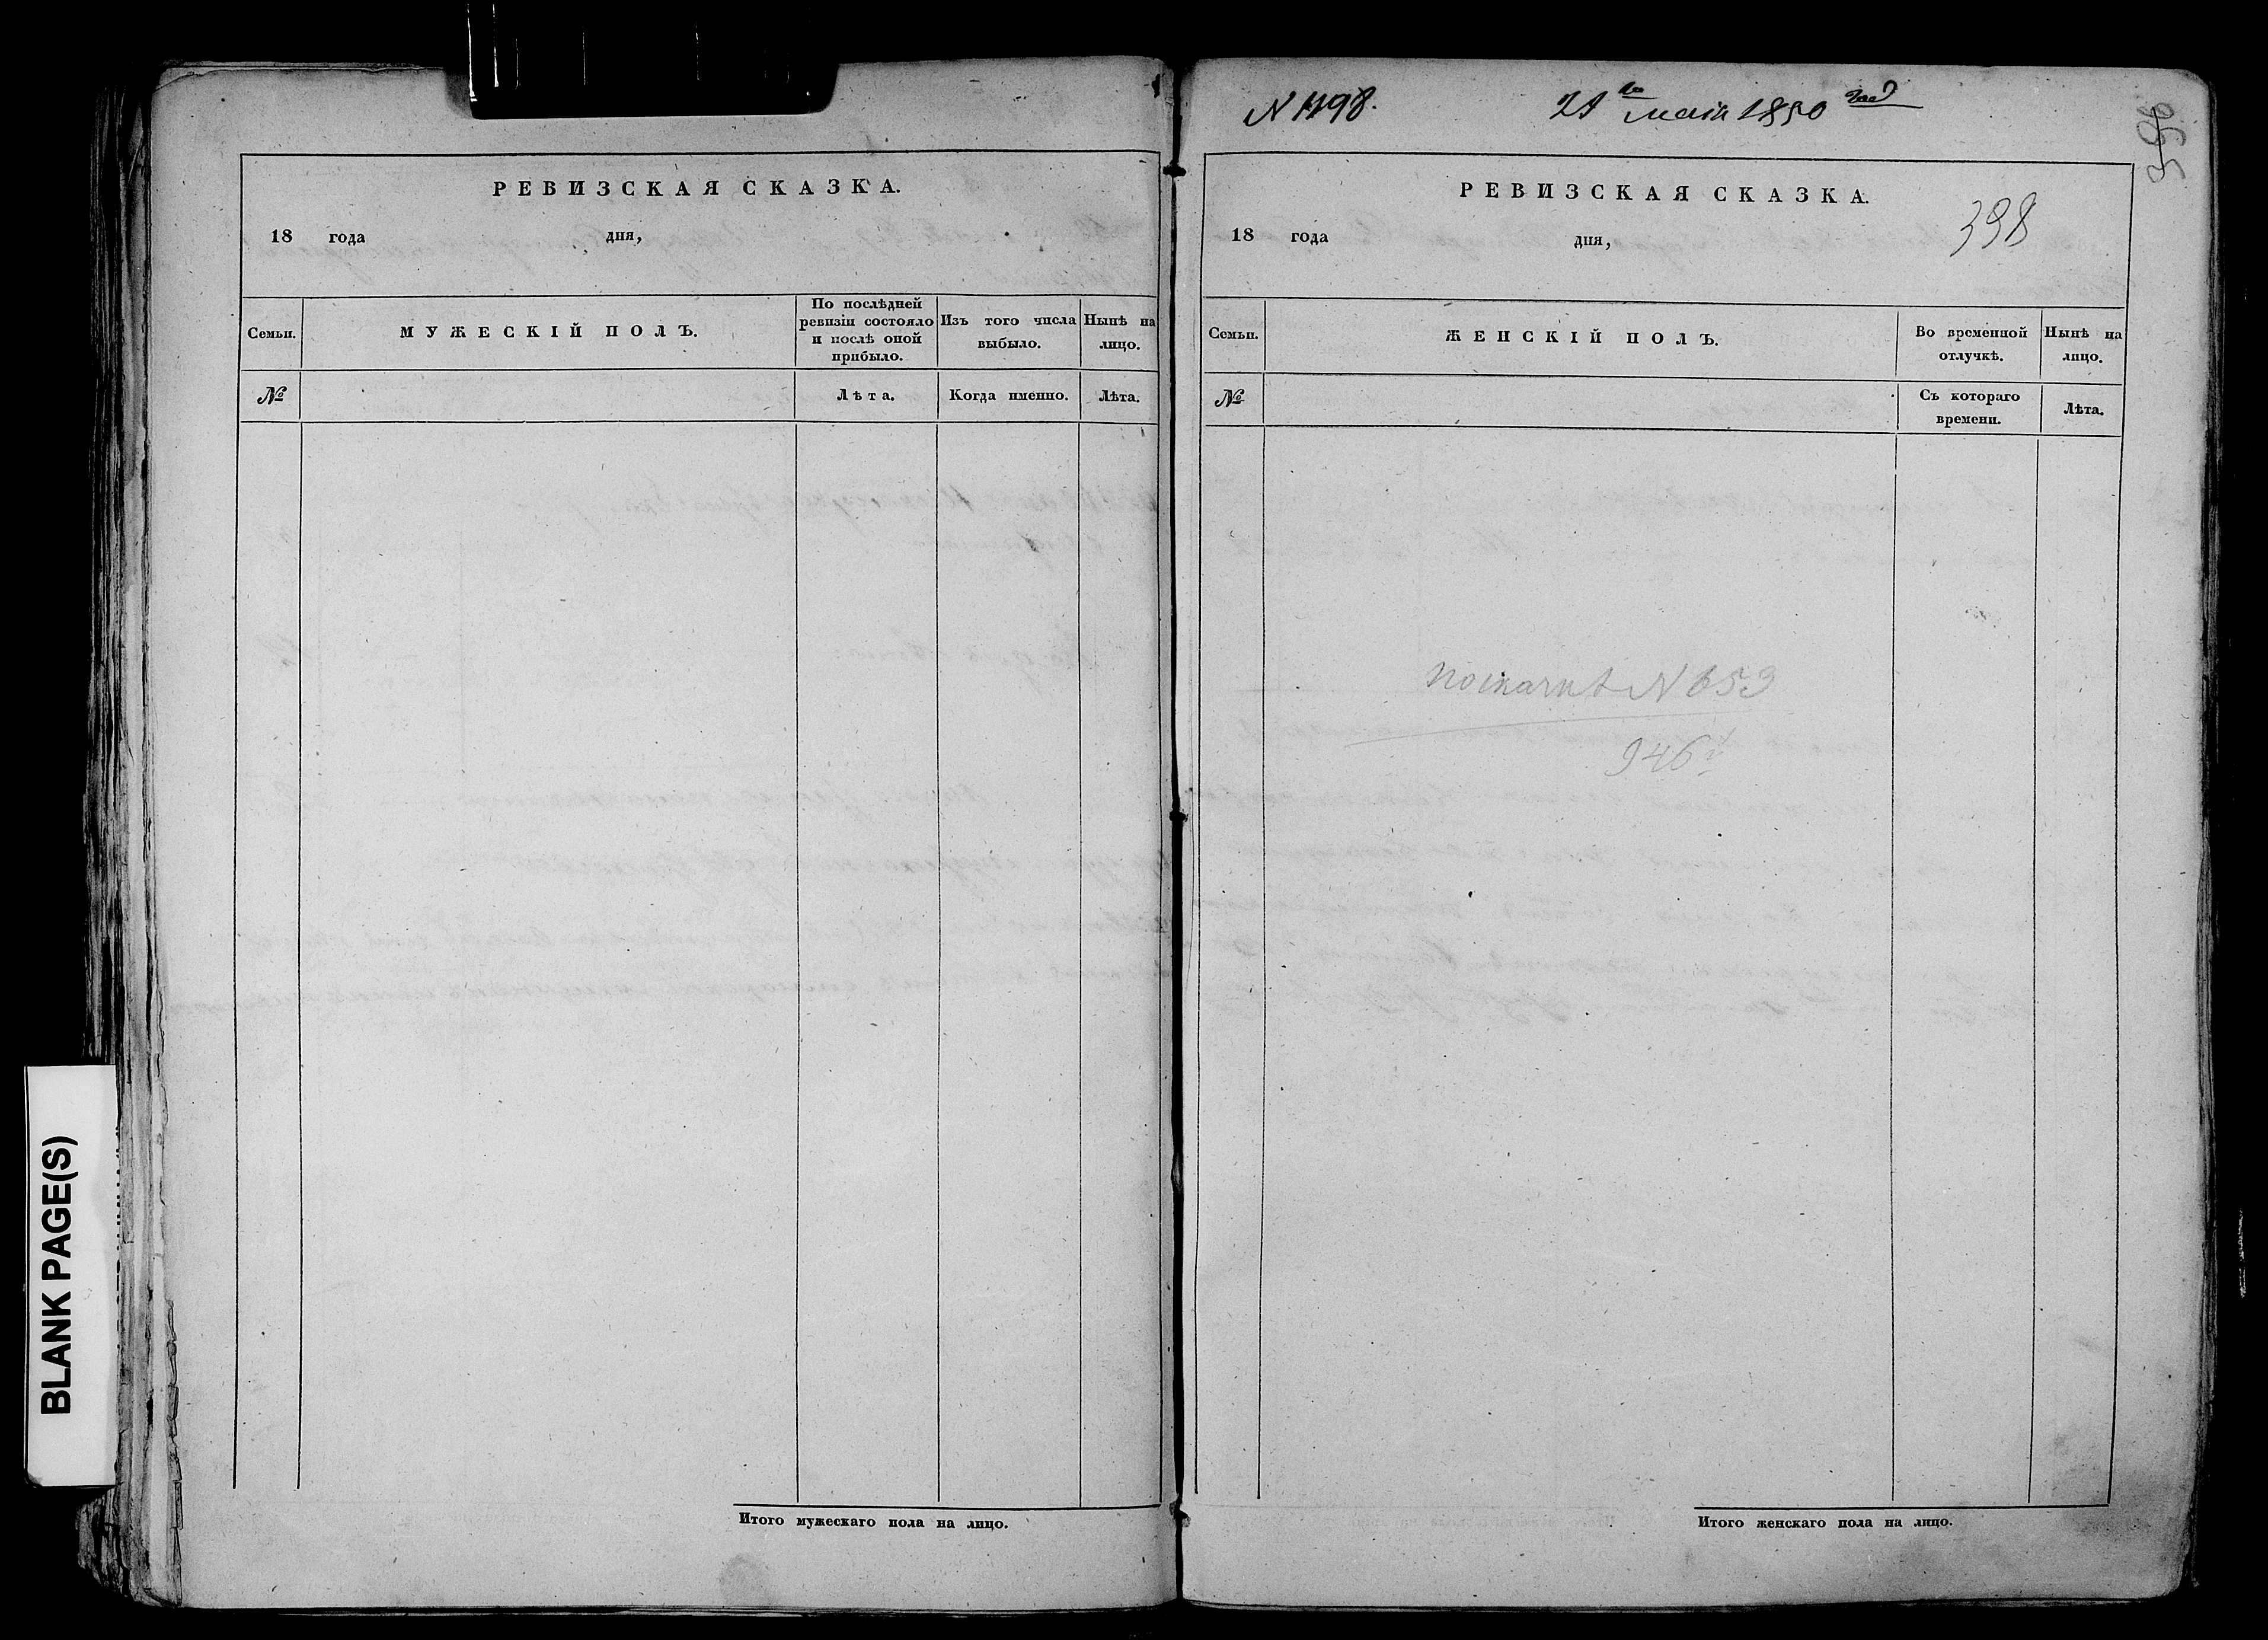 РЕВИЗСКАЯ СКАЗКА.
18 года дня,
Семьи.
МУЖЕСКІЙ ПОЛЪ.
По послѣдней ревизіи состояло и послѣ оной прибыло.
Изъ того числа выбыло.
Нынѣ на лицо.
№
Лѣта.
Когда именно.
Лѣта.
Итого мужескаго пола на лицо.
N 1198.
21го маія 1850 год
398
РЕВИЗСКАЯ СКАЗКА.
18 года дня,
Семьи.
ЖЕНСКІЙ ПОЛЪ.
Во временной отлучкѣ.
Нынѣ на лицо.
№
Съ котораго времени.
Лѣта.
N 659
946
Итого женскаго пола на лицо.
BLANK PAGE(S)